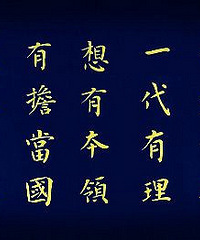 一代有理
想有本領
有擔當國